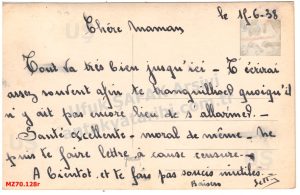 le 15-6-38
Chère Maman
Tout va très bien jusqu'ici - T'écrirai
assez souvent afin te tranquilliser quoiqu'il
n'y ait pas encore lieu de s'allarmer. -
Santé excellente - moral de même - ne
puis te faire lettre à cause censure -
A bientôt et te fais pas soucis inutiles.
Baisers
MZ70.128r